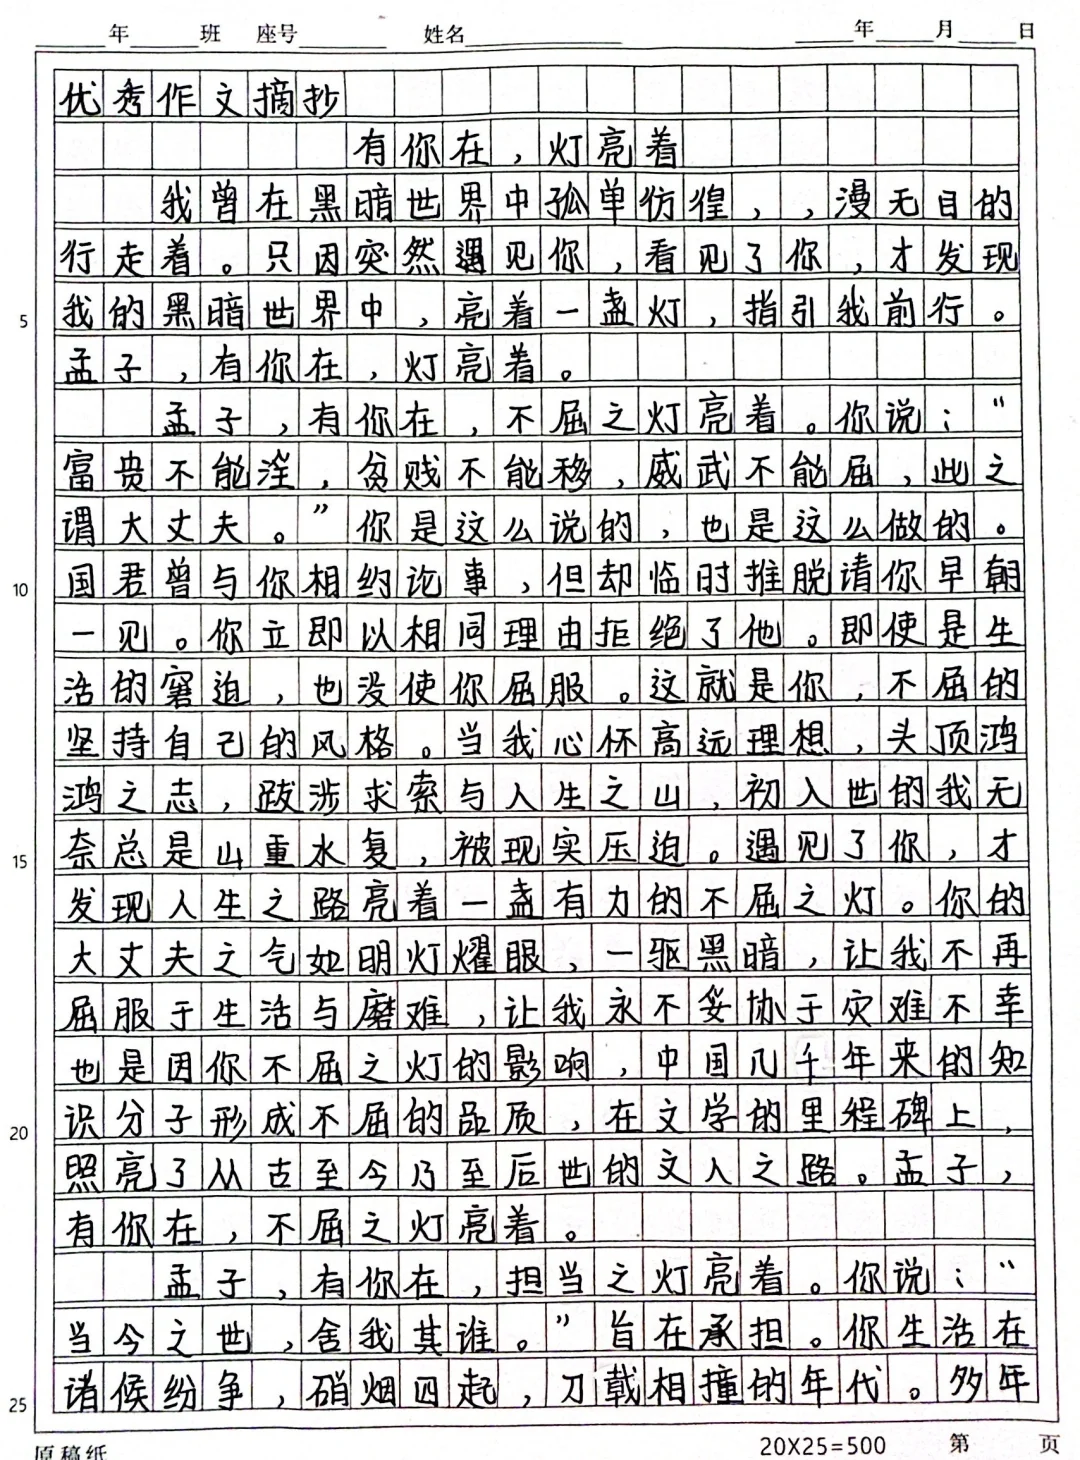 ____年____班 座号______ 姓名__________ ____年____月____日
优秀作文摘抄
有你在，灯亮着
我曾在黑暗世界中孤单彷徨，，漫无目的
行走着。只因突然遇见你，看见了你，才发现
5 我的黑暗世界中，亮着一盏灯，指引我前行。
孟子，有你在，灯亮着。
孟子，有你在，不屈之灯亮着。你说：“
富贵不能淫，贫贱不能移，威武不能屈，此之
谓大丈夫。”你是这么说的，也是这么做的。
10 国君曾与你相约论事，但却临时推脱请你早朝
一见。你立即以相同理由拒绝了他。即使是生
活的窘迫，也没使你屈服。这就是你，不屈的
坚持自己的风格。当我心怀高远理想，头顶鸿
鸿之志，跋涉求索与人生之山，初入世的我无
15 奈总是山重水复，被现实压迫。遇见了你，才
发现人生之路亮着一盏有力的不屈之灯。你的
大丈夫之气如明灯耀眼，一驱黑暗，让我不再
屈服于生活与磨难，让我永不妥协于灾难不幸
也是因你不屈之灯的影响，中国几千年来的知
20 识分子形成不屈的品质，在文学的里程碑上，
照亮了从古至今乃至后世的文人之路。孟子，
有你在，不屈之灯亮着。
孟子，有你在，担当之灯亮着。你说：“
当今之世，舍我其谁。”旨在承担。你生活在
25 诸侯纷争，硝烟四起，刀载相撞的年代。多年
原稿纸 20X25=500 第 页